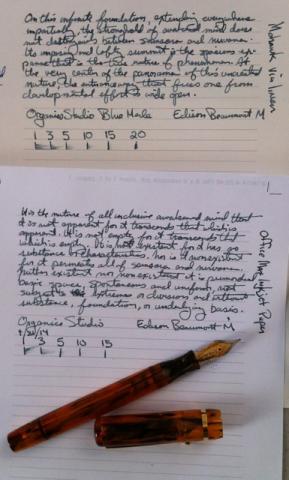 On this infinite foundation, extending everywhere
impartially, the stronghold of awakened mind does
not distinguish between samsara and nirvana.
Its imposing and lofty summit is the spacious ex-
panse that is the true nature of phenomena. At
the very center of the panorama of this uncreated
nature, the entranceway that frees one from
developmental effort is wide open.
Organics Studio Blue Merle Edison Beaumont M
1 3 5 10 15 20
Mohawk via linen
It is the nature of all inclusive awakened mind that
it is not apparent for it transcends what is
apparent. It is not empty for it transcends that
which is empty. It is not existent for it has no
substance or characteristics. Nor is it nonexistent
for it permeates all of samsara and nirvana.
Neither existent nor nonexistent it is primordial
basic space, spontaneous and uniform, not
subject to extremes or divisions and without
substance, foundation, or underlying basis.
Organics Studio Edison Beaumont M
1 3 5 10 15
Office Max Inkjet Paper